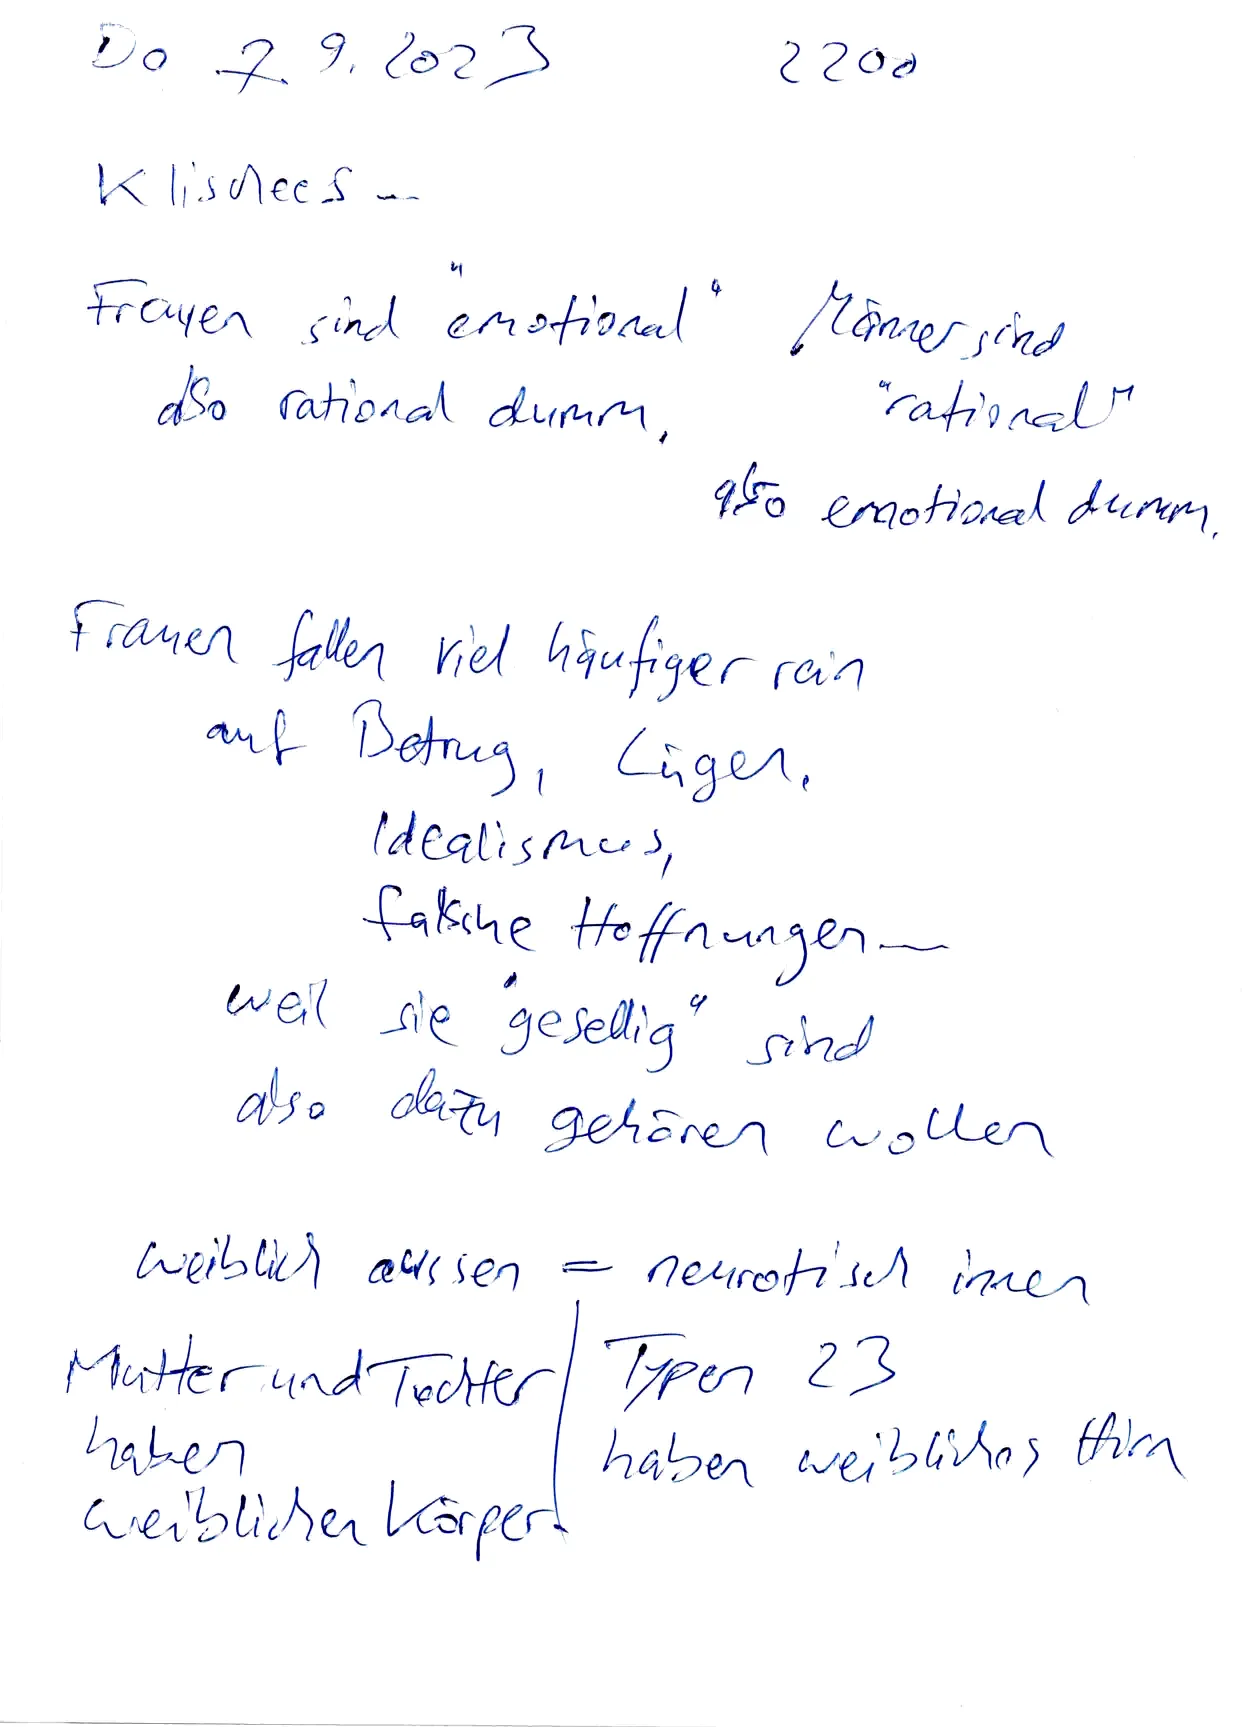 Do 7.9.2023 2200
Klischees...
Frauen sind "emotional"
also rational dumm.
Männer sind
"rational"
also emotional dumm.
Frauen fallen viel häufiger rein
auf Betrug, Lügen,
Idealismus,
falsche Hoffnungen...
weil sie "gesellig" sind
also dazu gehören wollen
weiblich aussen = neurotisch innen
Mutter und Tochter
haben
weiblichen Körper.
Typen 23
haben weibliches Hirn